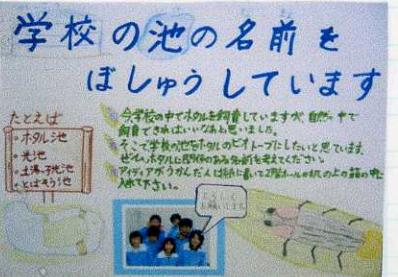 学校の池の名前を
ぼしゅうしています
たとえば
・ホタル池
・光池
・とばそう池
今学校の中でホタルを飼育していますが、自然の中で
飼育できればいいなあと思いました。
そこで学校の池をホタルのビオトープにしたいと思っています。
ぜひ、ホタルに関係のある名前を考えてください。
アイディアがうかんだ人は紙に書いて2階ホールの机の上の箱の中に
入れて下さい。
よろしく
お願いします